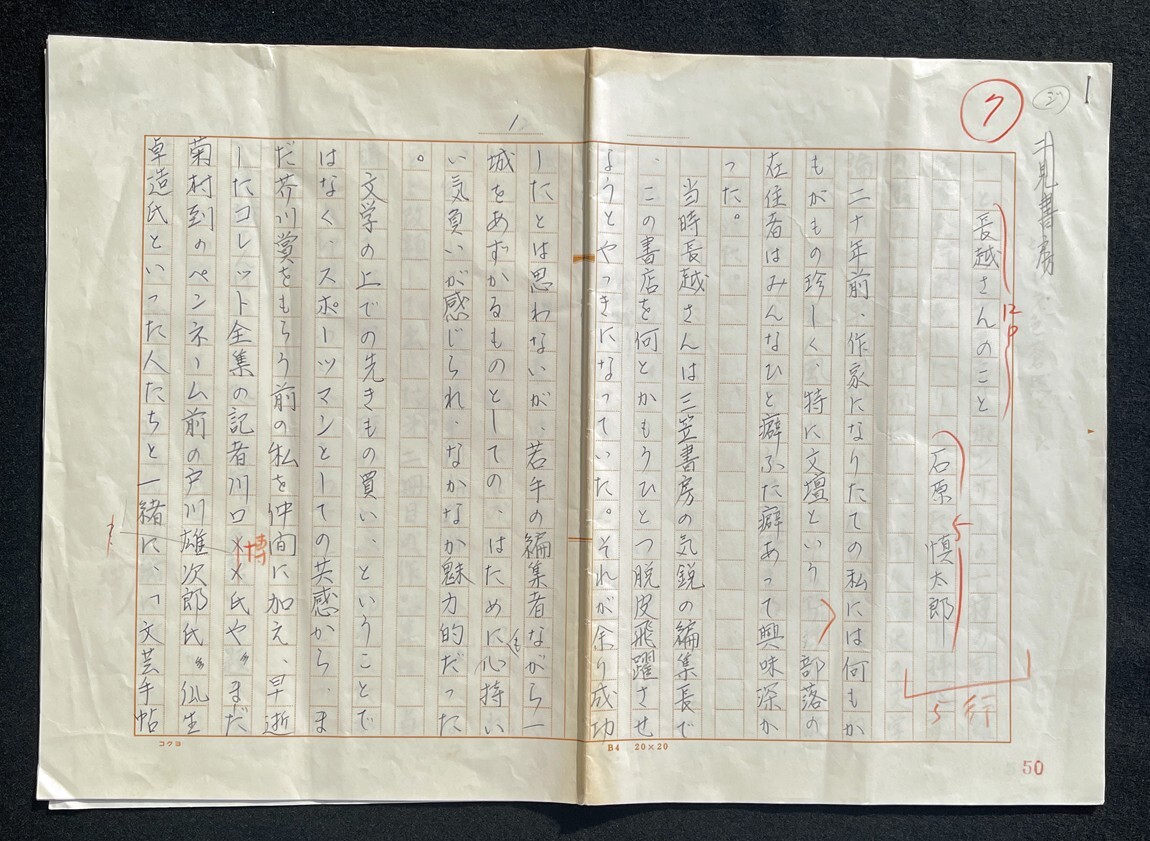 1
ジ
ク
二見書房
長越さんのこと
12P
石原 慎太郎
5
5行
二十年前、作家になりたての私には何もか
もがもの珍しく、特に文壇という部落の
在住者はみんなひと癖ふた癖あって興味深か
った。
当時長越さんは三笠書房の気鋭の編集長で
、この書店を何とかもうひとつ脱皮飛躍させ
ようとやっきになっていた。それが余り成功
1
したとは思わないが、若手の編集者ながら一
城をあずかるものとしての、はためにも心持い
い気負いが感じられ、なかなか魅力的だった
。
文学の上での先きもの買い、ということで
はなく、スポーツマンとしての共感から、ま
だ芥川賞をもらう前の私を仲間に加え、早逝
したコレット全集の記者川口××氏や〃まだ
博
菊村到のペンネーム前の戸川雄次郎氏〃瓜生
卓造氏といった人たちと一緒に、「文芸手帖
コクヨ
B4 20×20
50